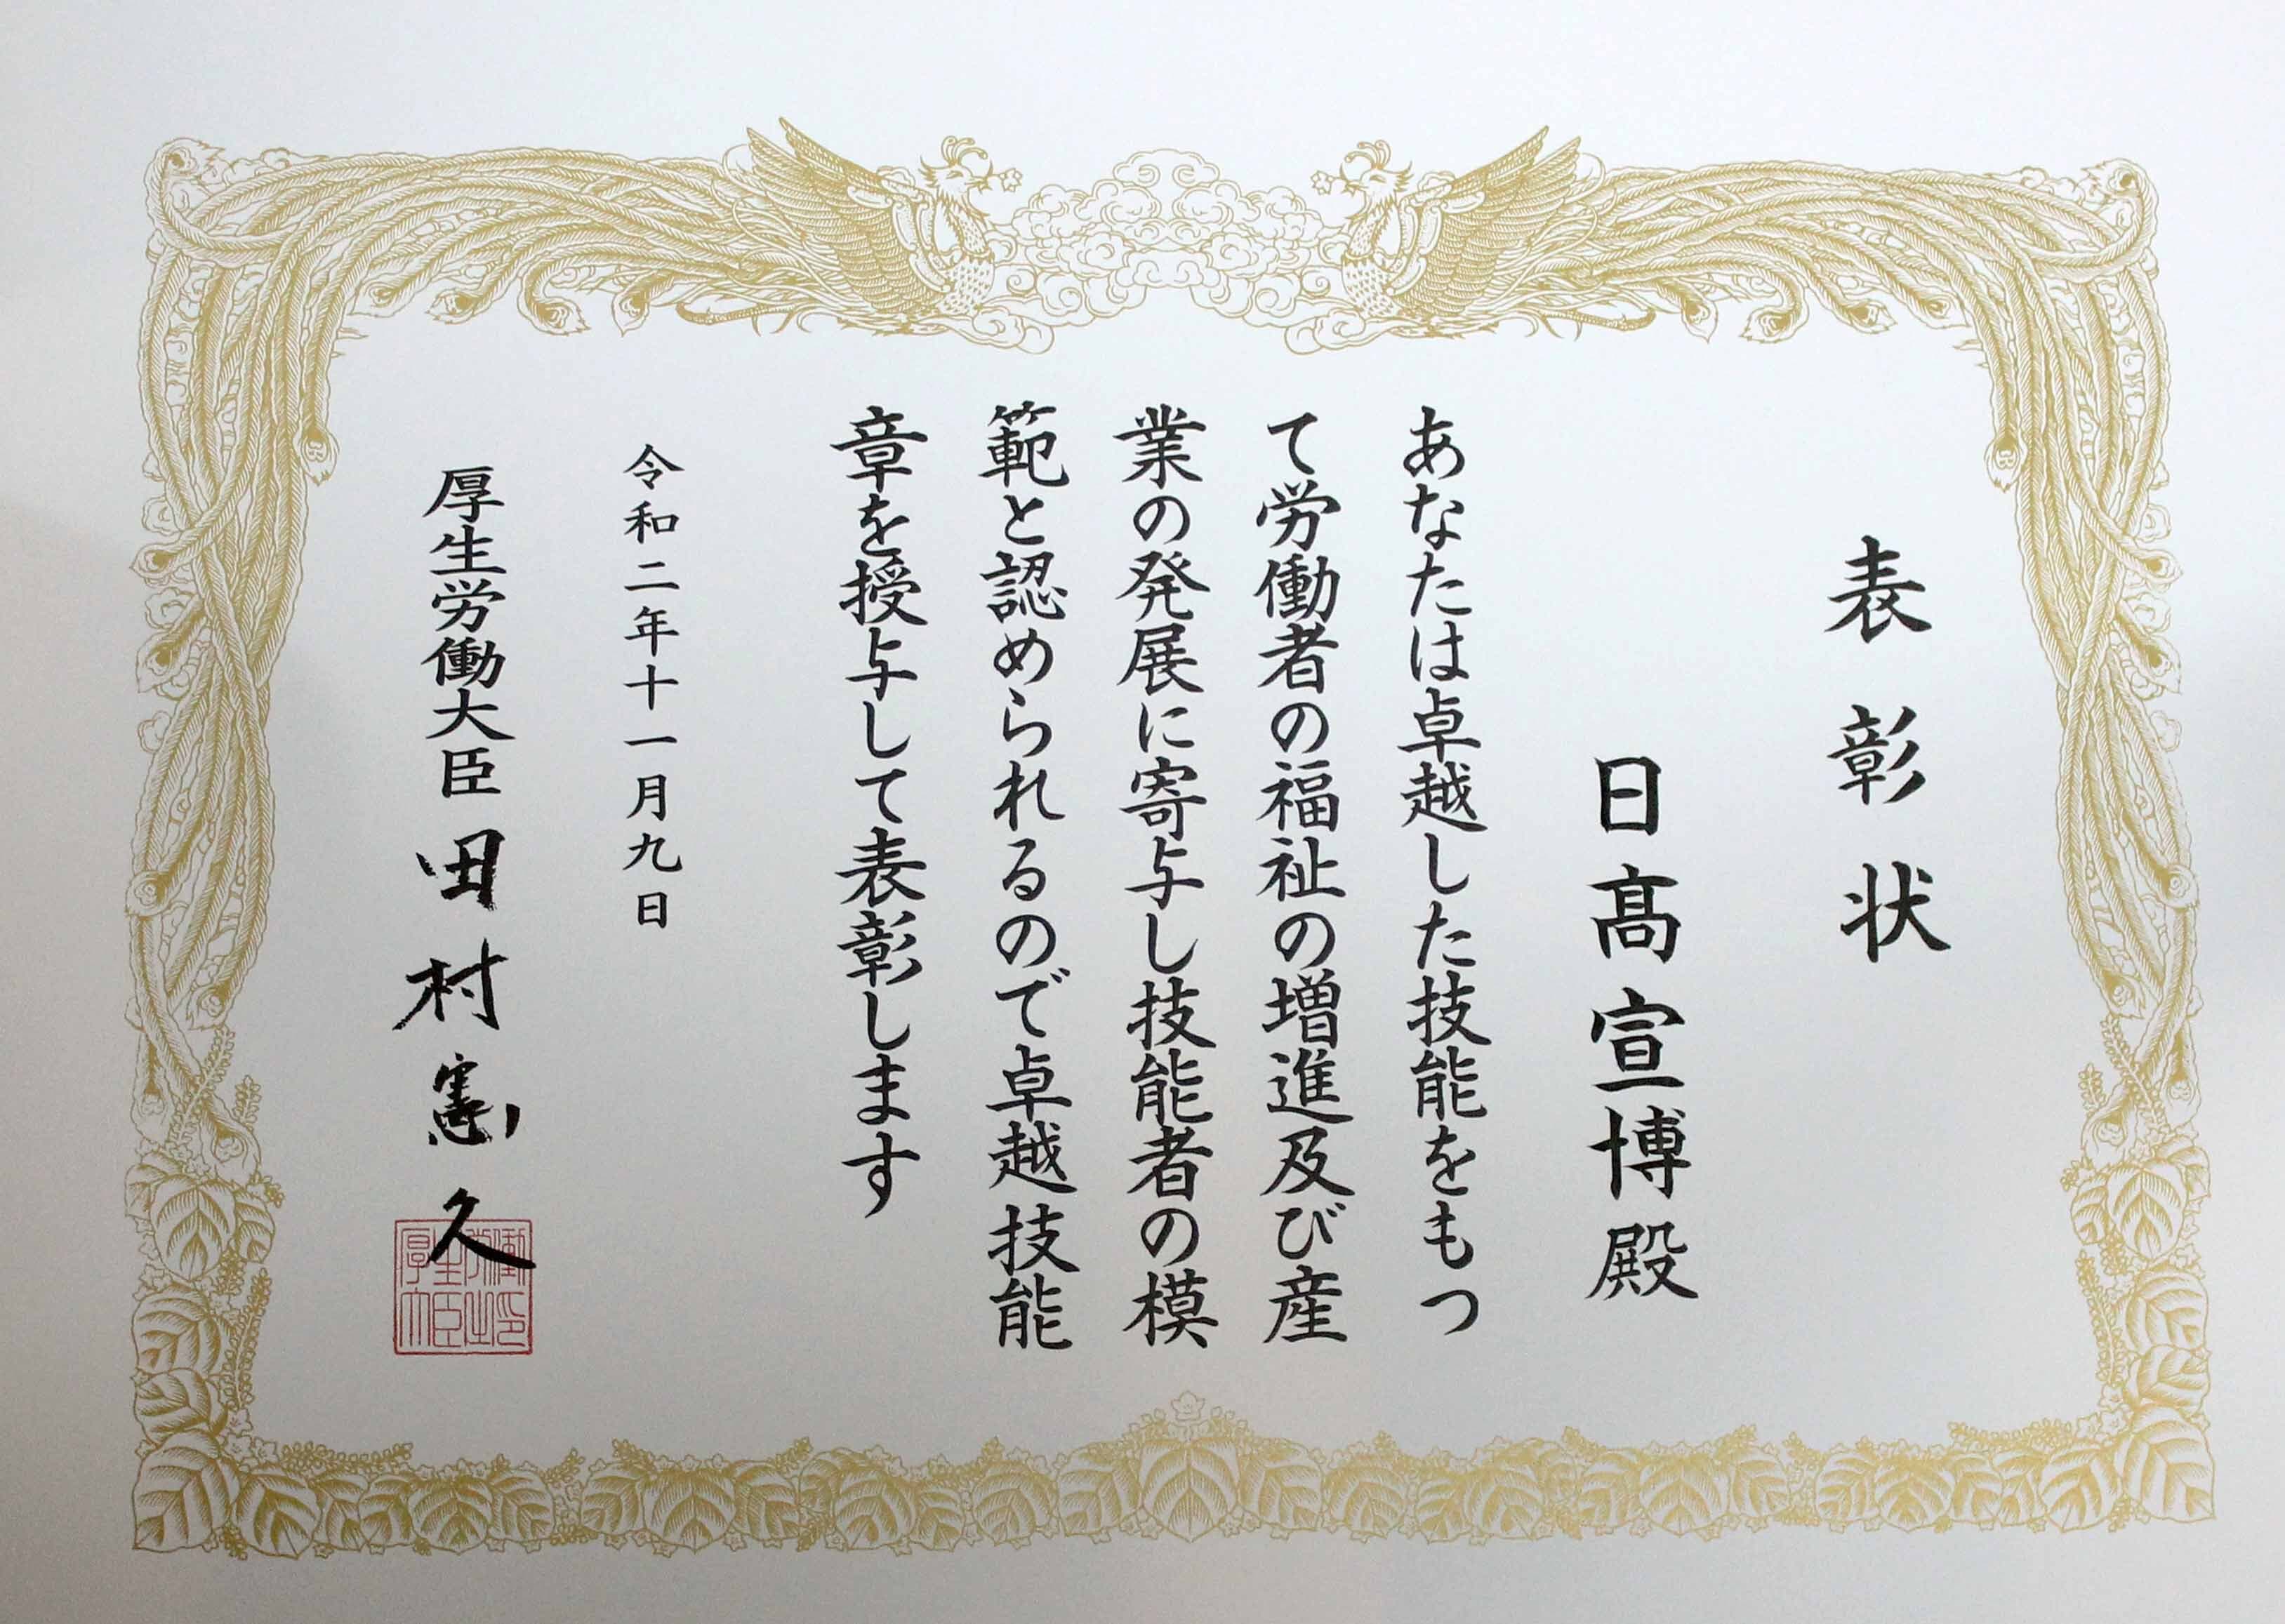 表彰状
日髙宣博殿
あなたは卓越した技能をもつ
て労働者の福祉の増進及び産
業の発展に寄与し技能者の模
範と認められるので卓越技能
章を授与して表彰します
令和二年十一月九日
厚生労働大臣 田村憲久